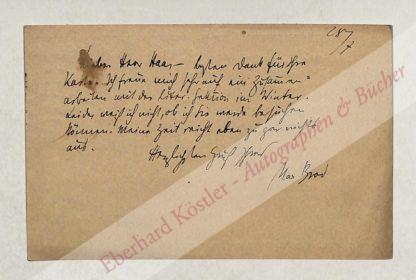 28/7
Lieber Herr Haas – besten Dank für Ihre
Karte. Ich freue mich sehr auf ein Zusammen=
arbeiten mit der liter. Sektion im Winter.
Leider weiß ich nicht, ob ich Sie werde besuchen
können. Meine Zeit reicht eben zu gar nichts
aus.
Herzlichsten Gruß Ihres
Max Brod
Eberhard Köstler - Autographen & Bücher